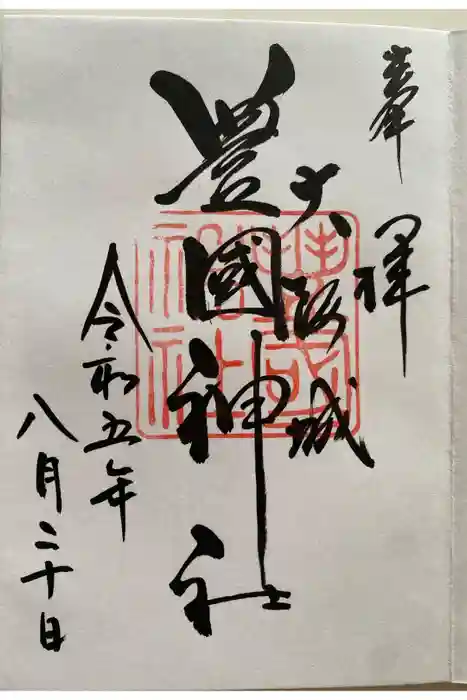 奉拝
大阪城
豊國神社
令和五年
八月二十日